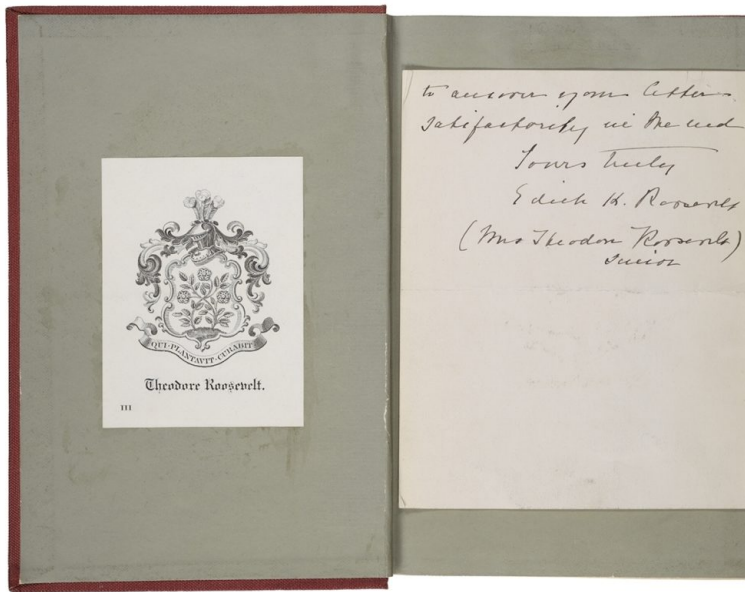 QUI·PLANTAVIT·CURABIT
Theodore Roosevelt.
III
to answer your letter
satisfactorily in the end
Yours truly
Edith K. Roosevelt
(Mrs Theodore Roosevelt)
Senior